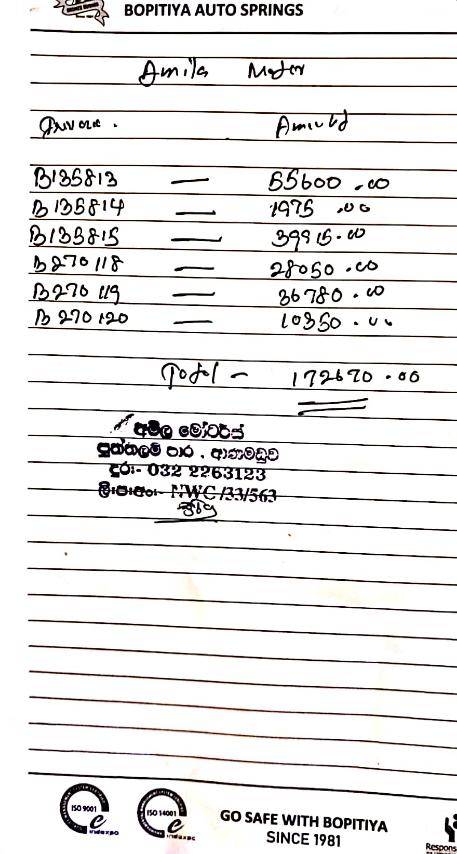 BOPITIYA AUTO SPRINGS
Amila Motor
Invoice. Amount
B135813 — 55600.00
B135814 — 1975.00
B135815 — 39915.00
B270118 — 28050.00
B270119 — 36780.00
B270120 — 10350.00
Total - 172670.00
අමිල මෝටර්ස්
පුත්තලම් පාර. ආණමඩුව
දුර:- 032 2263123
ලි:ප:අං:- NWC/33/563
ISO 9001
ISO 14001
indexpo
indexpo
GO SAFE WITH BOPITIYA
SINCE 1981
Respons